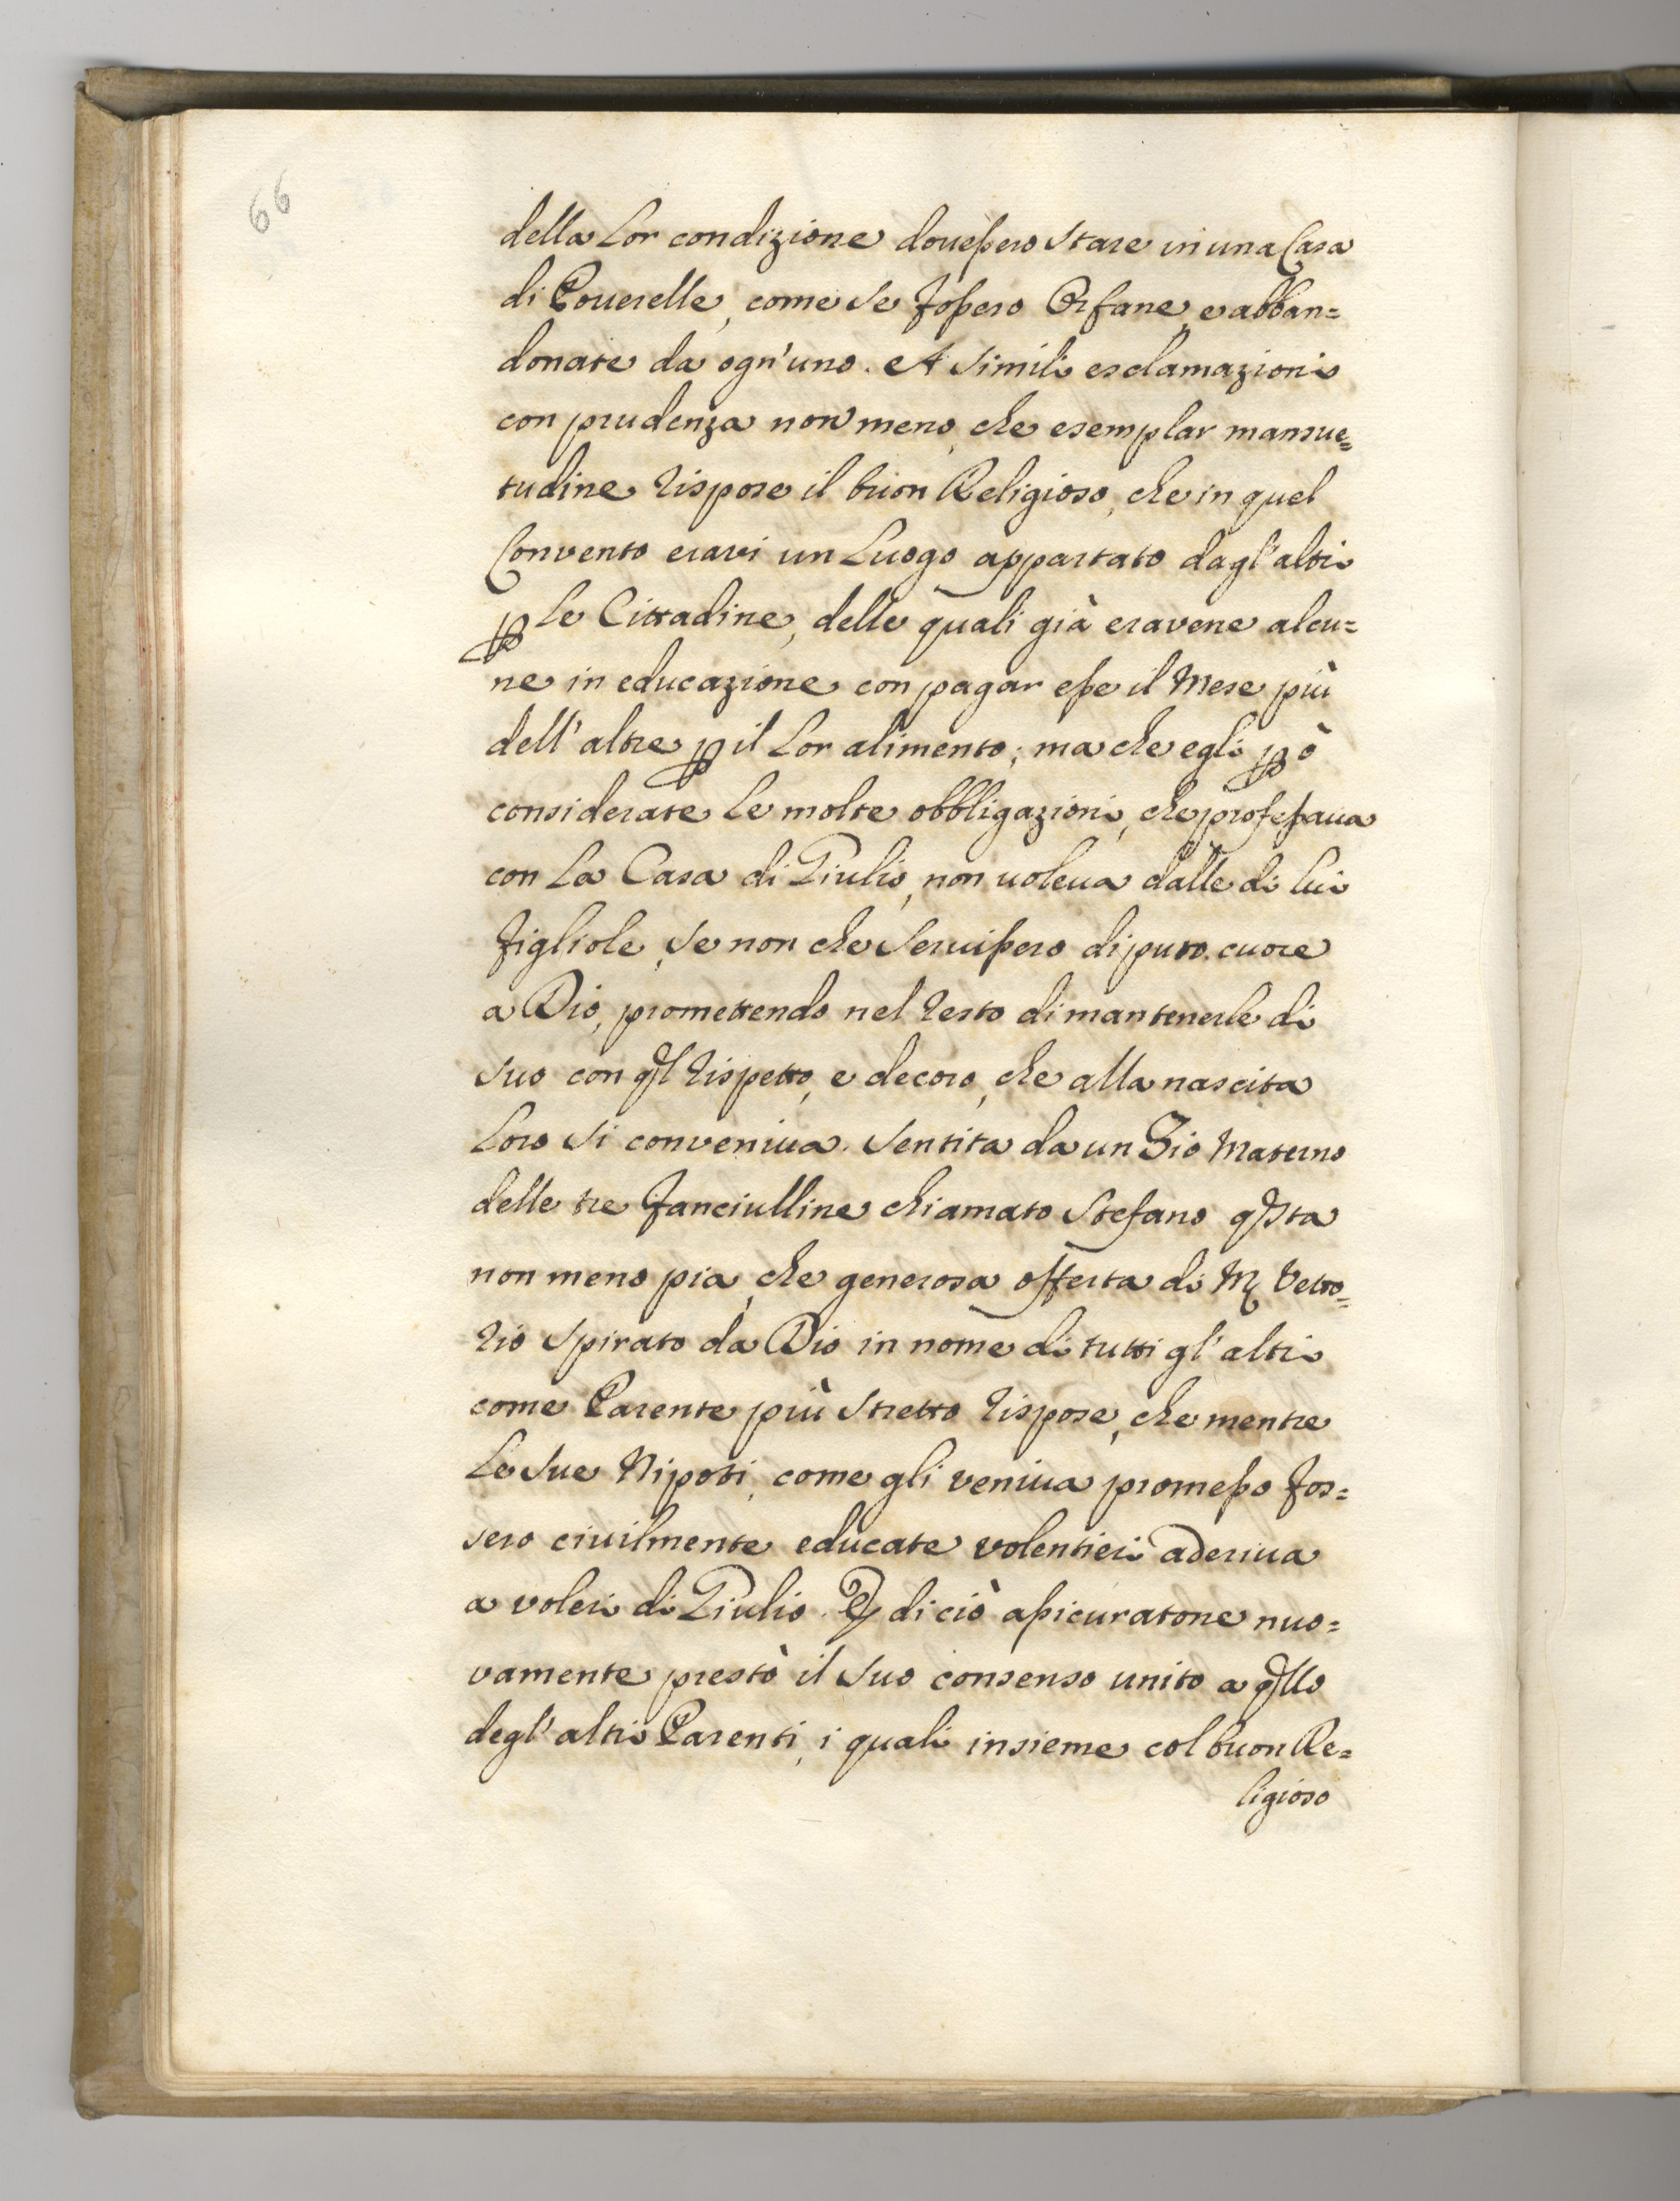 66
della Lor condizione douessero stare in una Casa
di Pouerelle, come se fossero Orfane, e abban=
donate da ogn'uno. A simili esclamazioni
con prudenza non meno, che esemplar mansue=
tudine rispose il buon Religioso, che in quel
Convento eravi un Luogo appartato dagl'altri
p Le Cittadine, delle quali già eravene alcu=
ne in educazione con pagar esse il Mese più
dell'altre p il Lor alimento; ma che egli pò
considerate Le molte obbligazioni, che professaua
con La Casa di Giulio, non uoleua dalle di lui
figliole, se non che seruissero di puro cuore
a Dio, promettendo nel resto di mantenerle di
suo con ql rispetto, e decoro, che alla nascita
Loro si conveniua. Sentita da un Zio Materno
delle tre fanciulline chiamato Stefano qsta
non meno pia, che generosa offerta di M Vetto=
rio spirato da Dio in nome di tutti gl'altri
come Parente più stretto rispose, che mentre
Le sue Nipoti, come gli veniua promesso fos=
sero ciuilmente educate volentieri aderiua
a voleri di Giulio. E di ciò assicuratone nuo=
vamente prestò il suo consenso unito a qllo
degl'altri Parenti, i quali insieme col buon Re=
ligioso